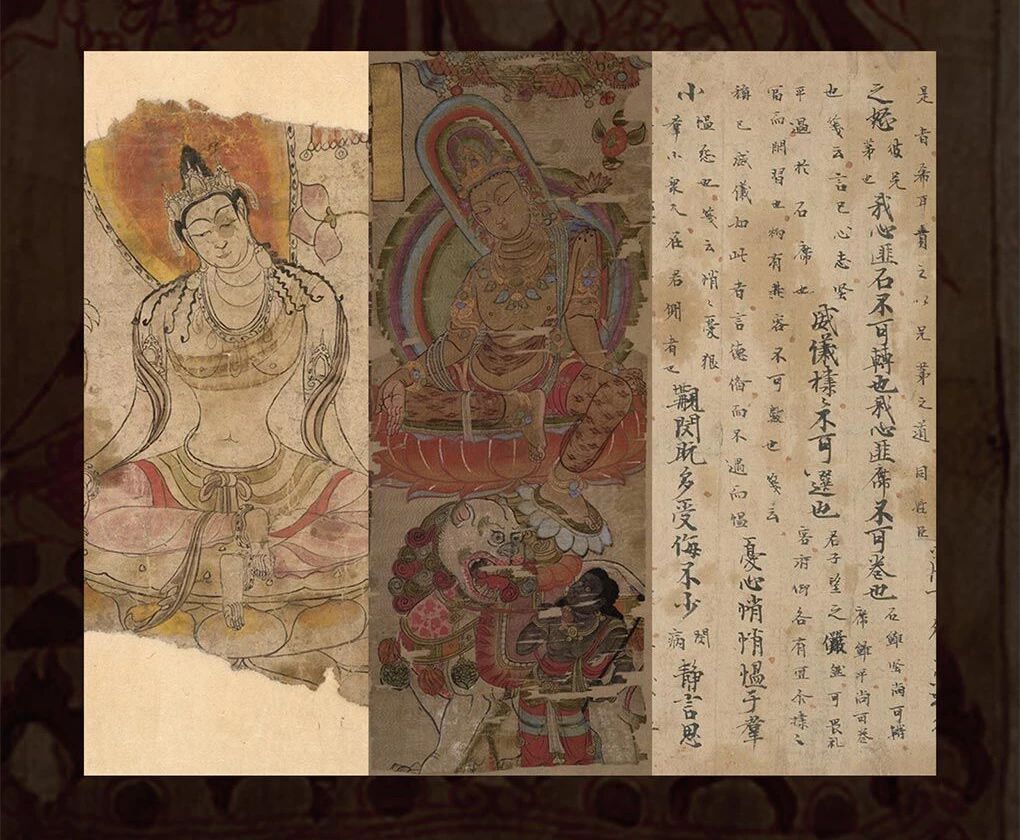 是者希耳責之以兄弟之道同姓臣
之怒彼兄弟也我心匪石不可轉也我心匪席不可卷也石雖堅尚可轉席雖平尚可卷
也箋云言己心志堅平過於石席也威儀棣〻不可選也君子望之儼然可畏礼容俯仰各有宜尒棣〻
冨而閑習也物有其容不可數也箋云稱己威儀如此者言德俻而不遇而愠憂心悄悄愠于羣
小愠怒也箋云悄〻憂狠羣小衆人在君側者也覯閔旣多受侮不少閔病静言思